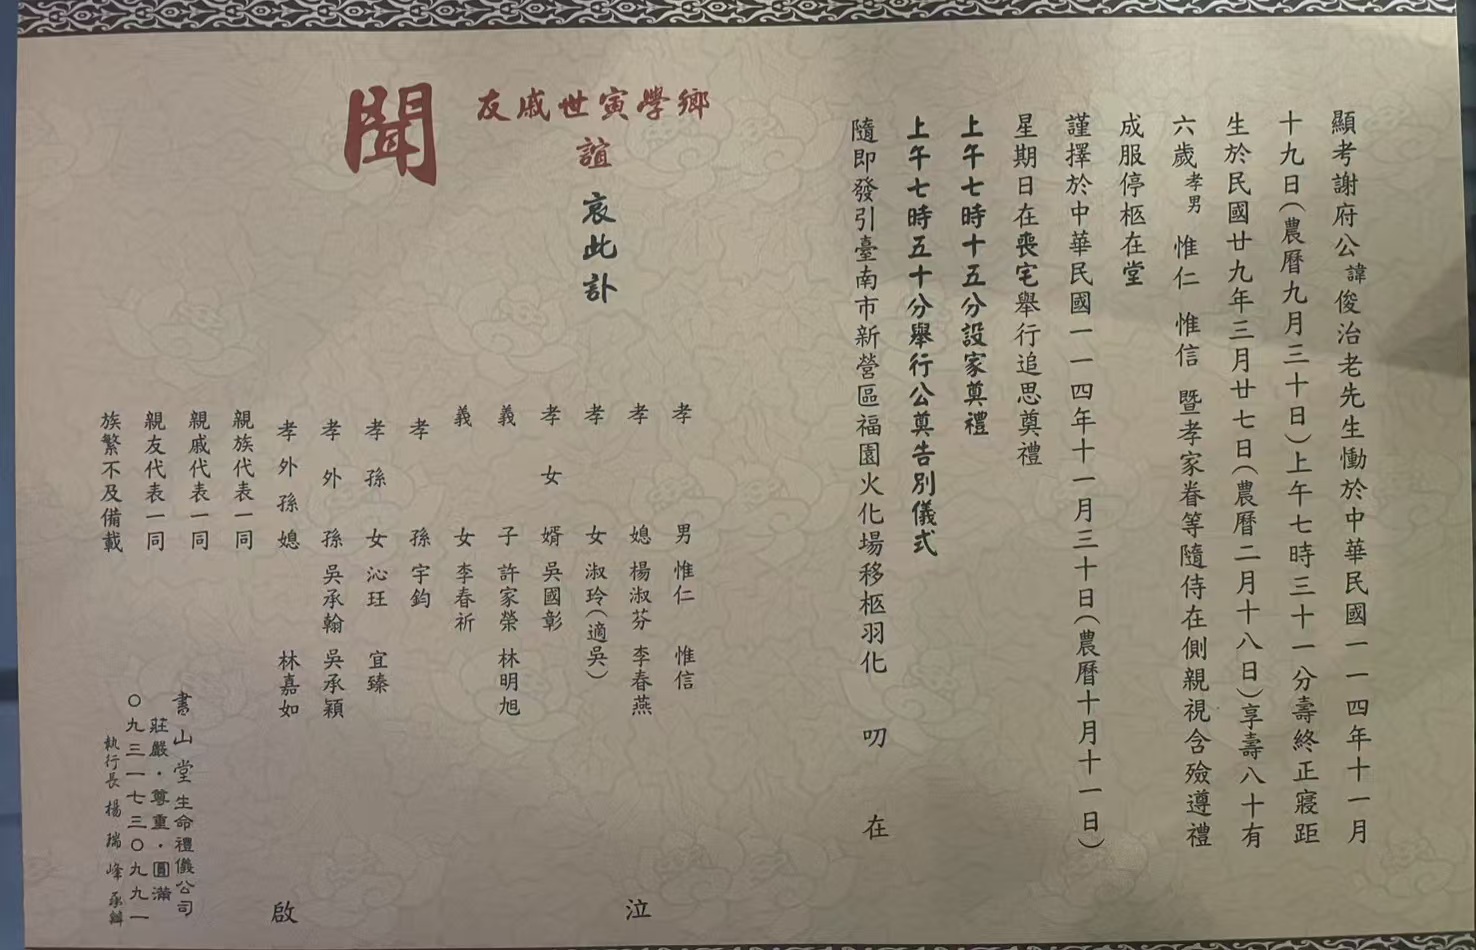 顯考謝府公諱俊治老先生慟於中華民國一一四年十一月
十九日(農曆九月三十日)上午七時三十一分壽終正寢距
生於民國廿九年三月廿七日(農曆二月十八日)享壽八十有
六歲孝男 惟仁 惟信 暨孝家眷等隨侍在側親視含殮遵禮
成服停柩在堂
謹擇於中華民國一一四年十一月三十日(農曆十月十一日)
星期日在喪宅舉行追思奠禮
上午七時十五分設家奠禮
上午七時五十分舉行公奠告別儀式
隨即發引臺南市新營區福園火化場移柩羽化 叨 在
鄉學寅世戚友
誼 哀此訃
聞
孝男 惟仁 惟信
孝媳 楊淑芬 李春燕 泣
孝女 淑玲(適吳)
孝女婿 吳國彰
義子 許家榮 林明旭
義女 李春祈
孝孫 宇鈞
孝孫女 沁玨 宜臻
孝外孫 吳承翰 吳承穎
孝外孫媳 林嘉如 啟
親族代表一同
親戚代表一同
親友代表一同
族繁不及備載
書山堂生命禮儀公司
莊嚴・尊重・圓滿
〇九三一七三〇九九一
執行長 楊瑞峰 承辦